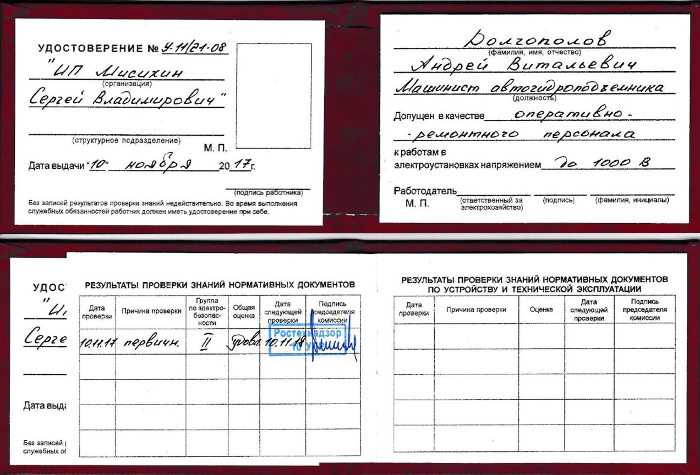 УДОСТОВЕРЕНИЕ № У-11/21-08
"ИП Мисихин
(организация)
Сергей Владимирович"
(структурное подразделение)
М. П.
Дата выдачи "10" ноября 2017г.
(подпись работника)
Без записей результатов проверки знаний недействительно. Во время выполнения
служебных обязанностей работник должен иметь удостоверение при себе.
Долгополов
(фамилия, имя, отчество)
Андрей Витальевич
Машинист автогидроподъемника
(должность)
Допущен в качестве оперативно-
-ремонтного персонала
к работам в
электроустановках напряжением до 1000 В
Работодатель
М. П. (ответственный за электрохозяйство) (подпись) (фамилия, инициалы)
УДОСТ
"И
Серге
Дата выда
Без записей
служебных об
РЕЗУЛЬТАТЫ ПРОВЕРКИ ЗНАНИЙ НОРМАТИВНЫХ ДОКУМЕНТОВ
Дата проверки Причина проверки Группа по электробезопасности Общая оценка Дата следующей проверки Подпись председателя комиссии
10.11.17 первичн. II удовл. 10.11.18
Ростехнадзор
РЕЗУЛЬТАТЫ ПРОВЕРКИ ЗНАНИЙ НОРМАТИВНЫХ ДОКУМЕНТОВ
ПО УСТРОЙСТВУ И ТЕХНИЧЕСКОЙ ЭКСПЛУАТАЦИИ
Дата проверки Причина проверки Оценка Дата следующей проверки Подпись председателя комиссии